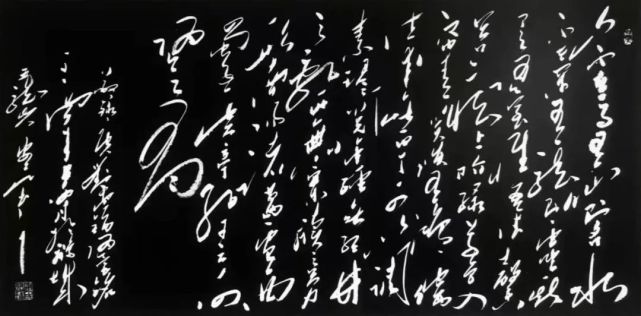 山不在高有仙则名水
不在深有龙则灵斯
是陋室惟吾德馨
苔痕上阶绿草色入
帘青谈笑有鸿儒
往来无白丁可以调
素琴阅金经无丝竹
之乱耳无案牍之劳
形南阳诸葛庐西
蜀子云亭孔子云何
陋之有
录唐刘禹锡陋室铭